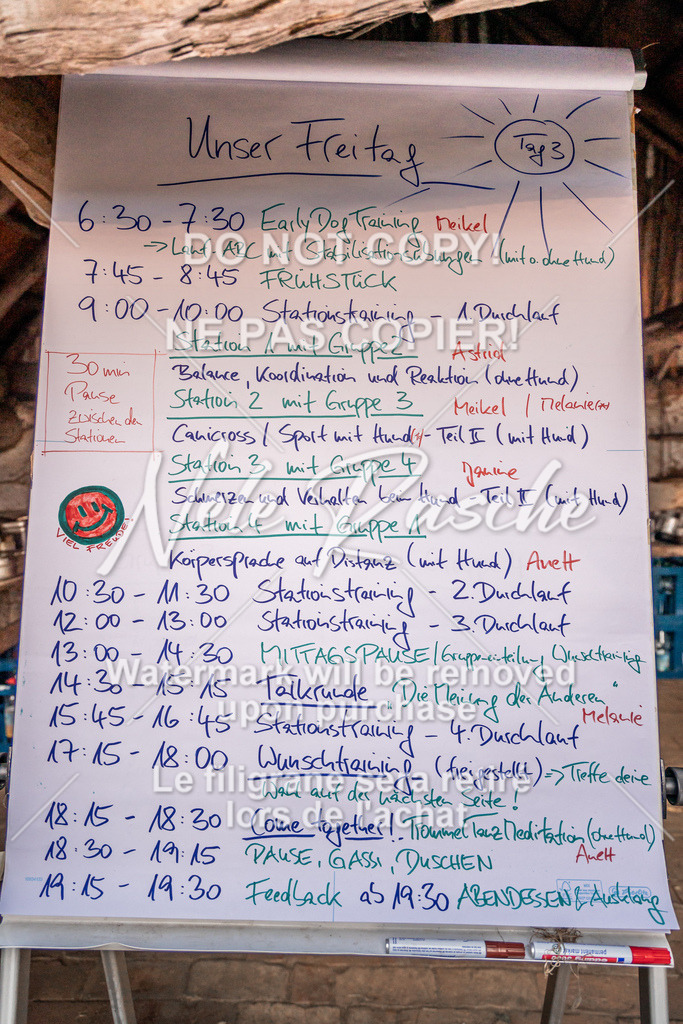 Unser Freitag
Tag 3
6:30 - 7:30 EarlyDogTraining Meikel
=> Lauf ABC mit Stabilisationsübungen (mit o. ohne Hund)
7:45 - 8:45 FRÜHSTÜCK
9:00 - 10:00 Stationstraining - 1. Durchlauf
Station 1 mit Gruppe 2 Astrid
Balance, Koordination und Reaktion (ohne Hund)
Station 2 mit Gruppe 3 Meikel / Melanie
Canicross / Sport mit Hund - Teil II (mit Hund)
Station 3 mit Gruppe 4 Janine
Schmerzen und Verhalten beim Hund - Teil II (mit Hund)
Station 4 mit Gruppe 1
Körpersprache auf Distanz (mit Hund) Anett
30 min
Pause
zwischen den
Stationen
VIEL FREUDE!
10:30 - 11:30 Stationstraining - 2. Durchlauf
12:00 - 13:00 Stationstraining - 3. Durchlauf
13:00 - 14:30 MITTAGSPAUSE / Gruppeneinteilung Wunschtraining
14:30 - 15:15 Talkrunde „Die Meinung der Anderen“
Melanie
15:45 - 16:45 Stationstraining - 4. Durchlauf
17:15 - 18:00 Wunschtraining - (freigestellt) => Treffe deine
Wahl auf der nächsten Seite!
18:15 - 18:30 Come together! TrommelTanzMeditation (ohne Hund)
Anett
18:30 - 19:15 PAUSE, GASSI, DUSCHEN
19:15 - 19:30 Feedback ab 19:30 ABENDESSEN & Ausklang
DO NOT COPY!
NE PAS COPIER!
Nele Rasche
Watermark will be removed
upon purchase
Le filigrane sera retiré
lors de l'achat